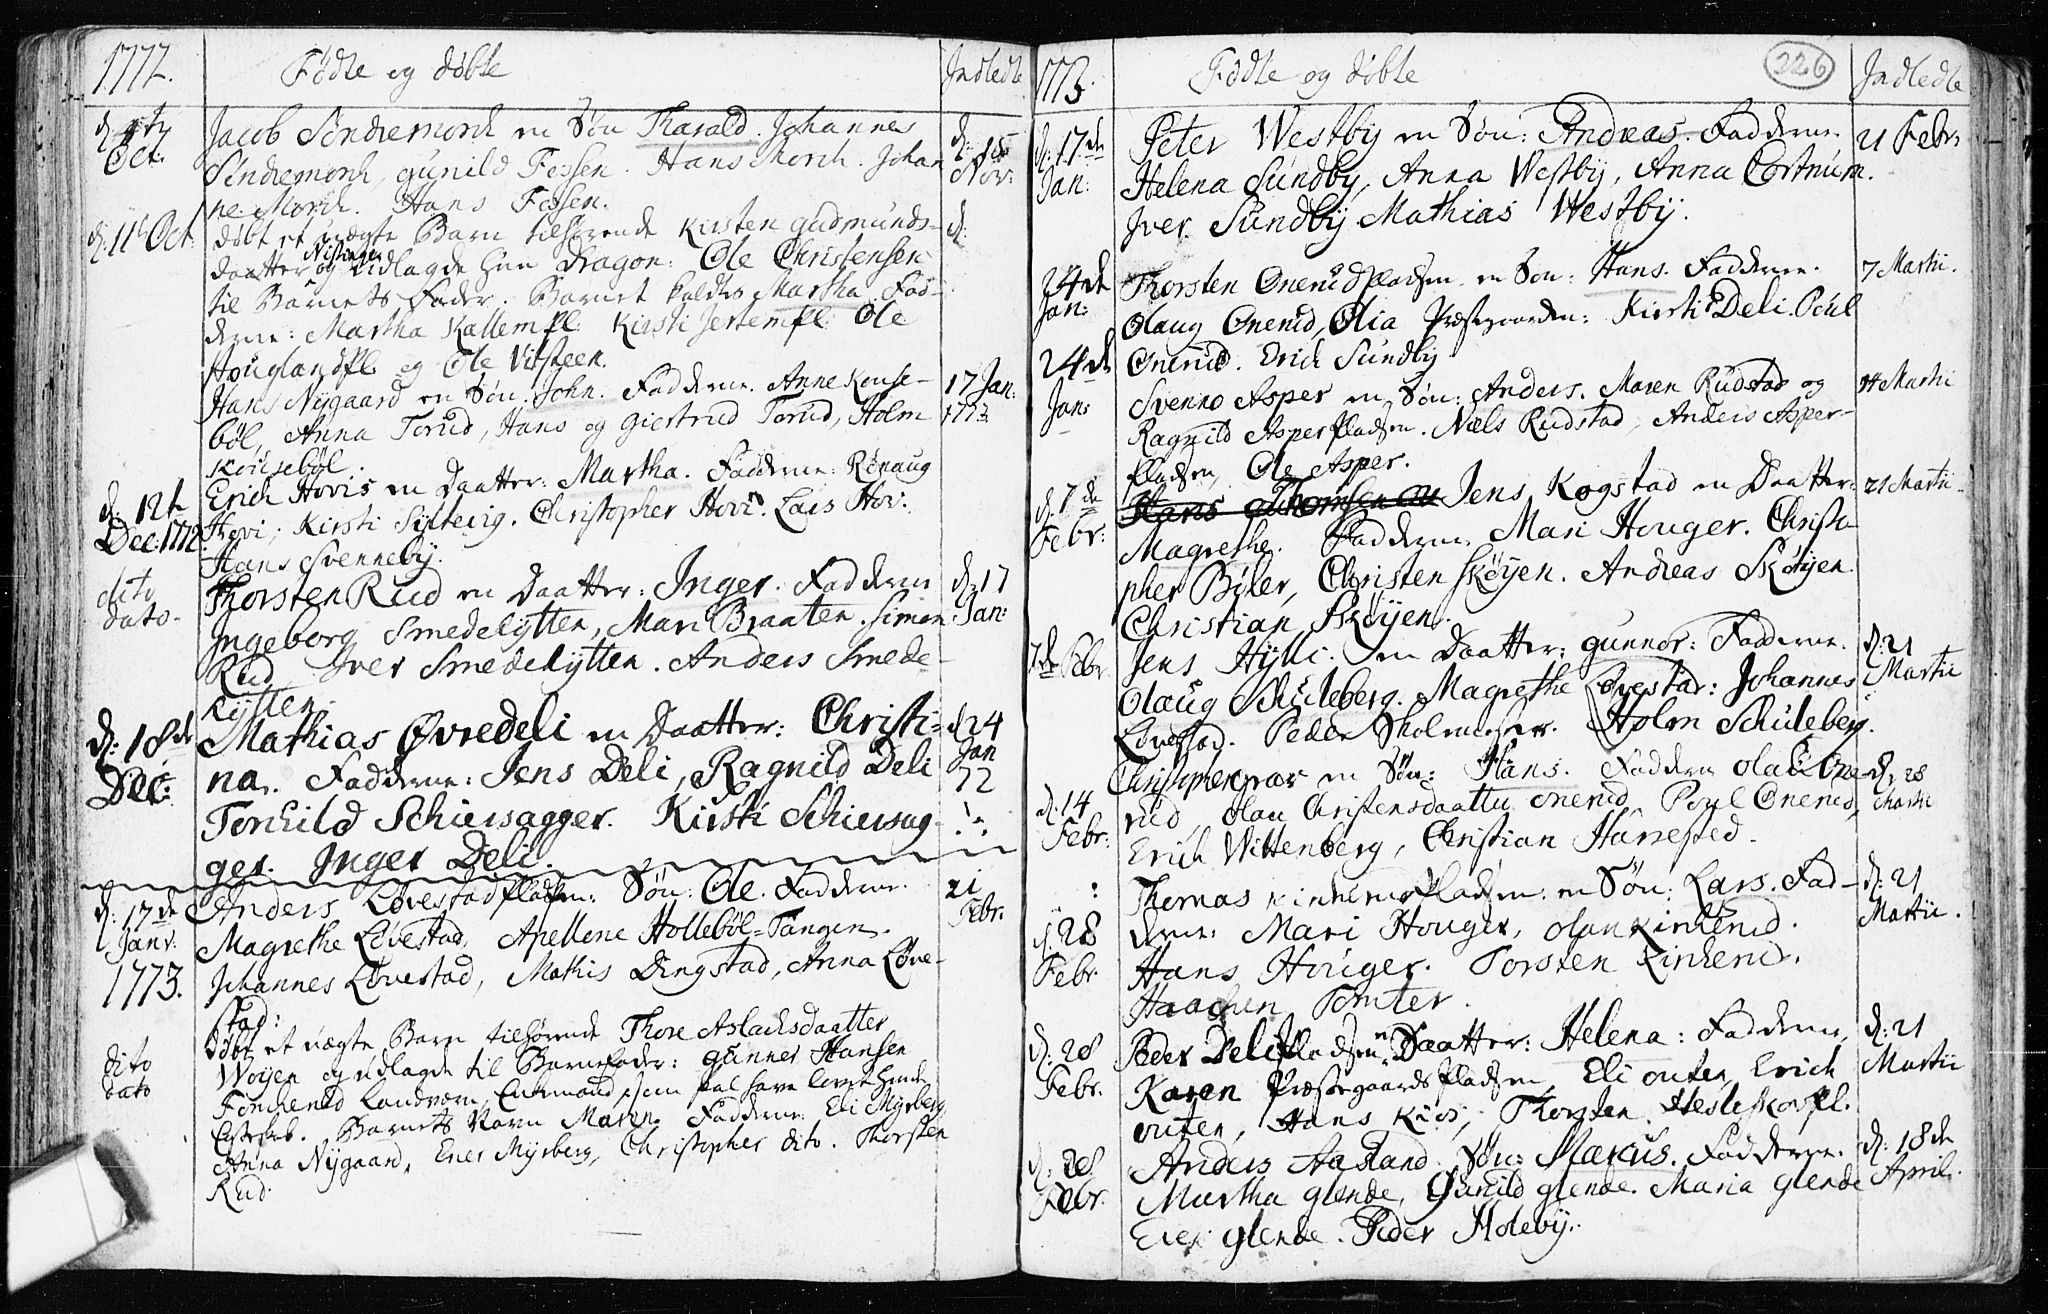 1772.
Fødte og døbte
Indledte
d:
Oct.
Jacob Søndremork en Søn Tharald. Johannes
Søndremork, Gunild Fossen. Hans Morch. Johan
ne Morch. Hans Fossen.
d: 15
Nov:
d: 11t Oct.
døbt et uægte Barn tilhørende Kirsten Gudmunds-
daatter og udlagde hun Dragon: Ole Christensen
til Barnets Fader. Barnet kaldtes Martha. Fad-
derne: Martha Kallem Pl. Kirsti Pl. Ole
Houglandpl. og Ole Visteen.
d:
Hans Nygaard en Søn: John. Fadderne. Anne Kouse-
bøl, Anna Torud, Hans og Giertrud Torud, Holm
Kousebøl.
17 Jan:
1773
d: 12t
Dec: 1772.
Erich Hovis en Daatter: Martha. Fadderne: Rønaug
Hovi, Kirsti Syltevig. Christopher Hovi. Lars Hov.
Hans Svenneby.
dito
dato-
Thorsten Rud en Daatter: Inger. Fadderne
Ingeborg Smedelytten, Mari Braaten. Simen
Rud Iver Smedelytten. Anders Smede-
lytten.
d: 17
Jan:
d: 18de
Dec:
Mathias Øvredeli en Daatter: Christi-
na. Fadderne: Jens Deli, Ragnild Deli
Torkild Schiersagger. Kirsti Schiersag-
ger. Inger Deli.
d 24
Jan
72
d: 17de
Janv:
1773.
Anders Løvestadpladsen: Søn: Ole. Fadderne.
Magrethe Løvestad, Apellone Hollebøl-Tangen.
Johannes Løvestad, Mathis Dingstad, Anna Løve-
stad:
21
Febr.
dito
dato
døbt et uægte Barn tilhørende Thore Aslachsdaatter
Woyen og udlagde til Barnefader: Gunner Hansen
Fonkerud Landværn, som skal have lovet hende
Barnets Navn Maren. Fadderne. Eli Myrberg
Anna Nygaard, Ener Myrberg, Christopher dito. Thorsten
Rud.
1773.
Fødte og døbte
226
Indledte
d: 17de
Jan:
Peter Westby en Søn: Andreas. Fadderne.
Helena Sundby, Anna Westby, Anna Cortnum.
Iver Sundby Mathias Westby.
21 Febr:
24de
Jan:
Thorsten Onerudpladsen en Søn: Hans. Fadderne.
Olaug Onerud, Olia Præstegaarden: Kirsti Deli. Poul
Onerud. Erich Sundby
7 Martii.
24de
Jan:
Svenno Asper en Søn: Anders. Maren Rudstad og
Ragnild Asperpladsen. Næls Rudstad, Anders Asper-
pladsen, Ole Asper.
14 Martii
d: 7de
Febr:
Hans Thomsen Jens Kogstad en Daatter:
Magrethe. Fadderne. Mari Houger. Christo-
pher Bøler, Christen Skøyen. Andreas Skøyen.
Christian Skøyen.
21 Martii-
7de Febr
Jens Hylli en Daatter: Gunnor: Fadderne.
Olaug Schuleberg. Magrethe Løvestad: Johannes
Løvestad. Peder. Holm Schuleberg.
d: 21
Martii
d: 14
Febr:
Christopher en Søn: Hans. Fadderne Olau One-
rud, Olau Christensdaatter Onerud, Poul Onerud,
Erich Wittenberg, Christian Harrestad.
d: 28
Martii
d: 28
Febr
Thomas Kinkerudpladsen: en Søn: Lars. Fad-
derne: Mari Houger, Olau Kinkerud.
Hans Houger. Torsten Kinkerud.
Haachen Tomter.
d: 21
Martii.
d: 28
Febr.
Peder Delipladsen en Daatter: Helena: Fadderne,
Karen Præstegaardspladsen, Eli outen, Erich
outen, Hans Kios, Thorsten Hesleskovpl.
d: 21
Martii
d: 28
Febr.
Anders Aasland Søn: Marcus. Fadderne.
Martha Glende, Gunild Glende. Maria Glende
Ener Glende. Peder Holeby.
d: 18de
April.